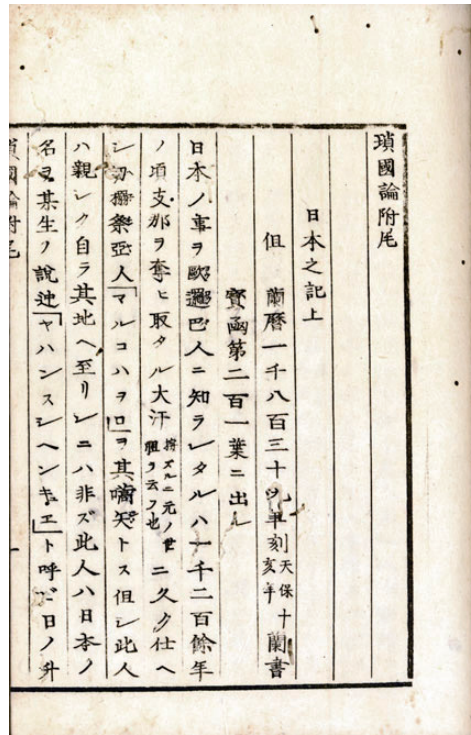 瑣國論附尾
日本之記上
但 蘭曆一千八百三十九年刻天保十亥年蘭書
寶函第二百一葉ニ出ル
日本ノ事ヲ歐邏巴人ニ知ラレタルハ一千二百餘年
ノ頃支那ヲ奪ヒ取タル大汗按ズルニ元ノ世祖ヲ云フ也ニ久ク仕ヘ
シ勿搦祭亞人「マルコハヲロ」ヲ其嚆矢トス但シ此人
ハ親シク自ラ其地ヘ至リシニハ非ズ此人ハ日本ノ
名ヲ某生ノ說迚「ヤハンスシヘンキエ」ト呼ビ日ノ升
瑣國論附尾